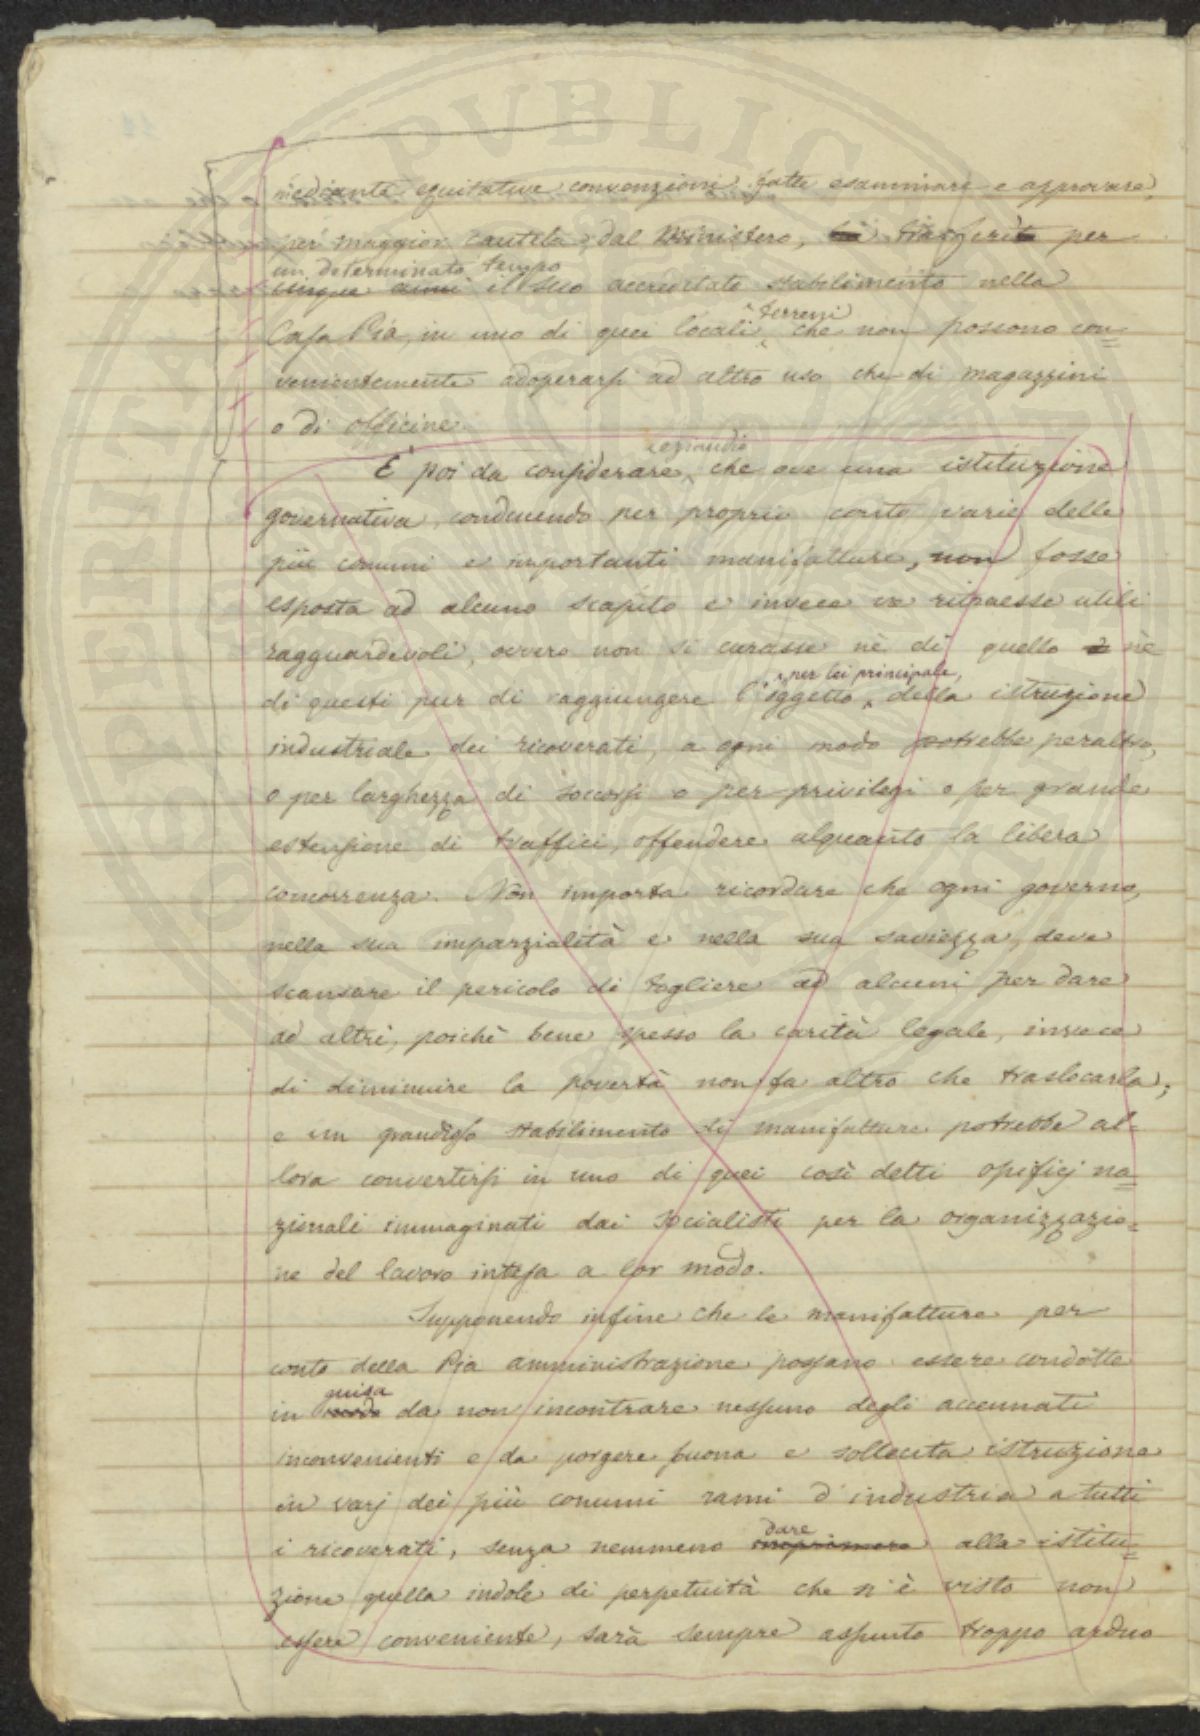 mediante equitative convenzioni fatte esaminare e approvare,
per maggior cautela, dal Ministero, trasferito per
un determinato tempo
cinque anni il suo accreditato stabilimento nella
terreni
Casa Pia, in uno di quei locali, che non possono con=
venientemente adoperarsi ad altro uso che di magazzini
o di officine.
eziandio
È poi da considerare, che ove una istituzione
governativa, conducendo per proprio conto varie delle
più comuni e importanti manifatture, non fosse
esposta ad alcuno scapito e invece ne ritraesse utili
ragguardevoli, ovvero non si curasse nè di quello nè
per lei principale,
di questi pur di raggiungere l'oggetto, della istruzione
industriale dei ricoverati, a ogni modo potrebbe peraltro,
o per larghezza di soccorsi o per privilegi o per grande
estensione di traffici, offendere alquanto la libera
concorrenza. Non importa ricordare che ogni governo,
nella sua imparzialità e nella sua saviezza, deve
scansare il pericolo di togliere ad alcuni per dare
ad altri, poichè bene spesso la carità legale, invece
di diminuire la povertà non fa altro che traslocarla;
e un grandioso stabilimento di manifatture potrebbe al=
lora convertirsi in uno di quei così detti opificj na=
zionali immaginati dai socialisti per la organizzazio=
ne del lavoro intesa a lor modo.
Supponendo infine che le manifatture per
conto della Pia amministrazione possano essere condotte
guisa
in modo da non incontrare nessuno degli accennati
inconvenienti e da porgere buona e sollecita istruzione
in varj dei più comuni rami d'industria a tutti
dare
i ricoverati, senza nemmeno imprimere alla istitu=
zione quella indole di perpetuità che si è visto non
essere conveniente, sarà sempre assunto troppo arduo